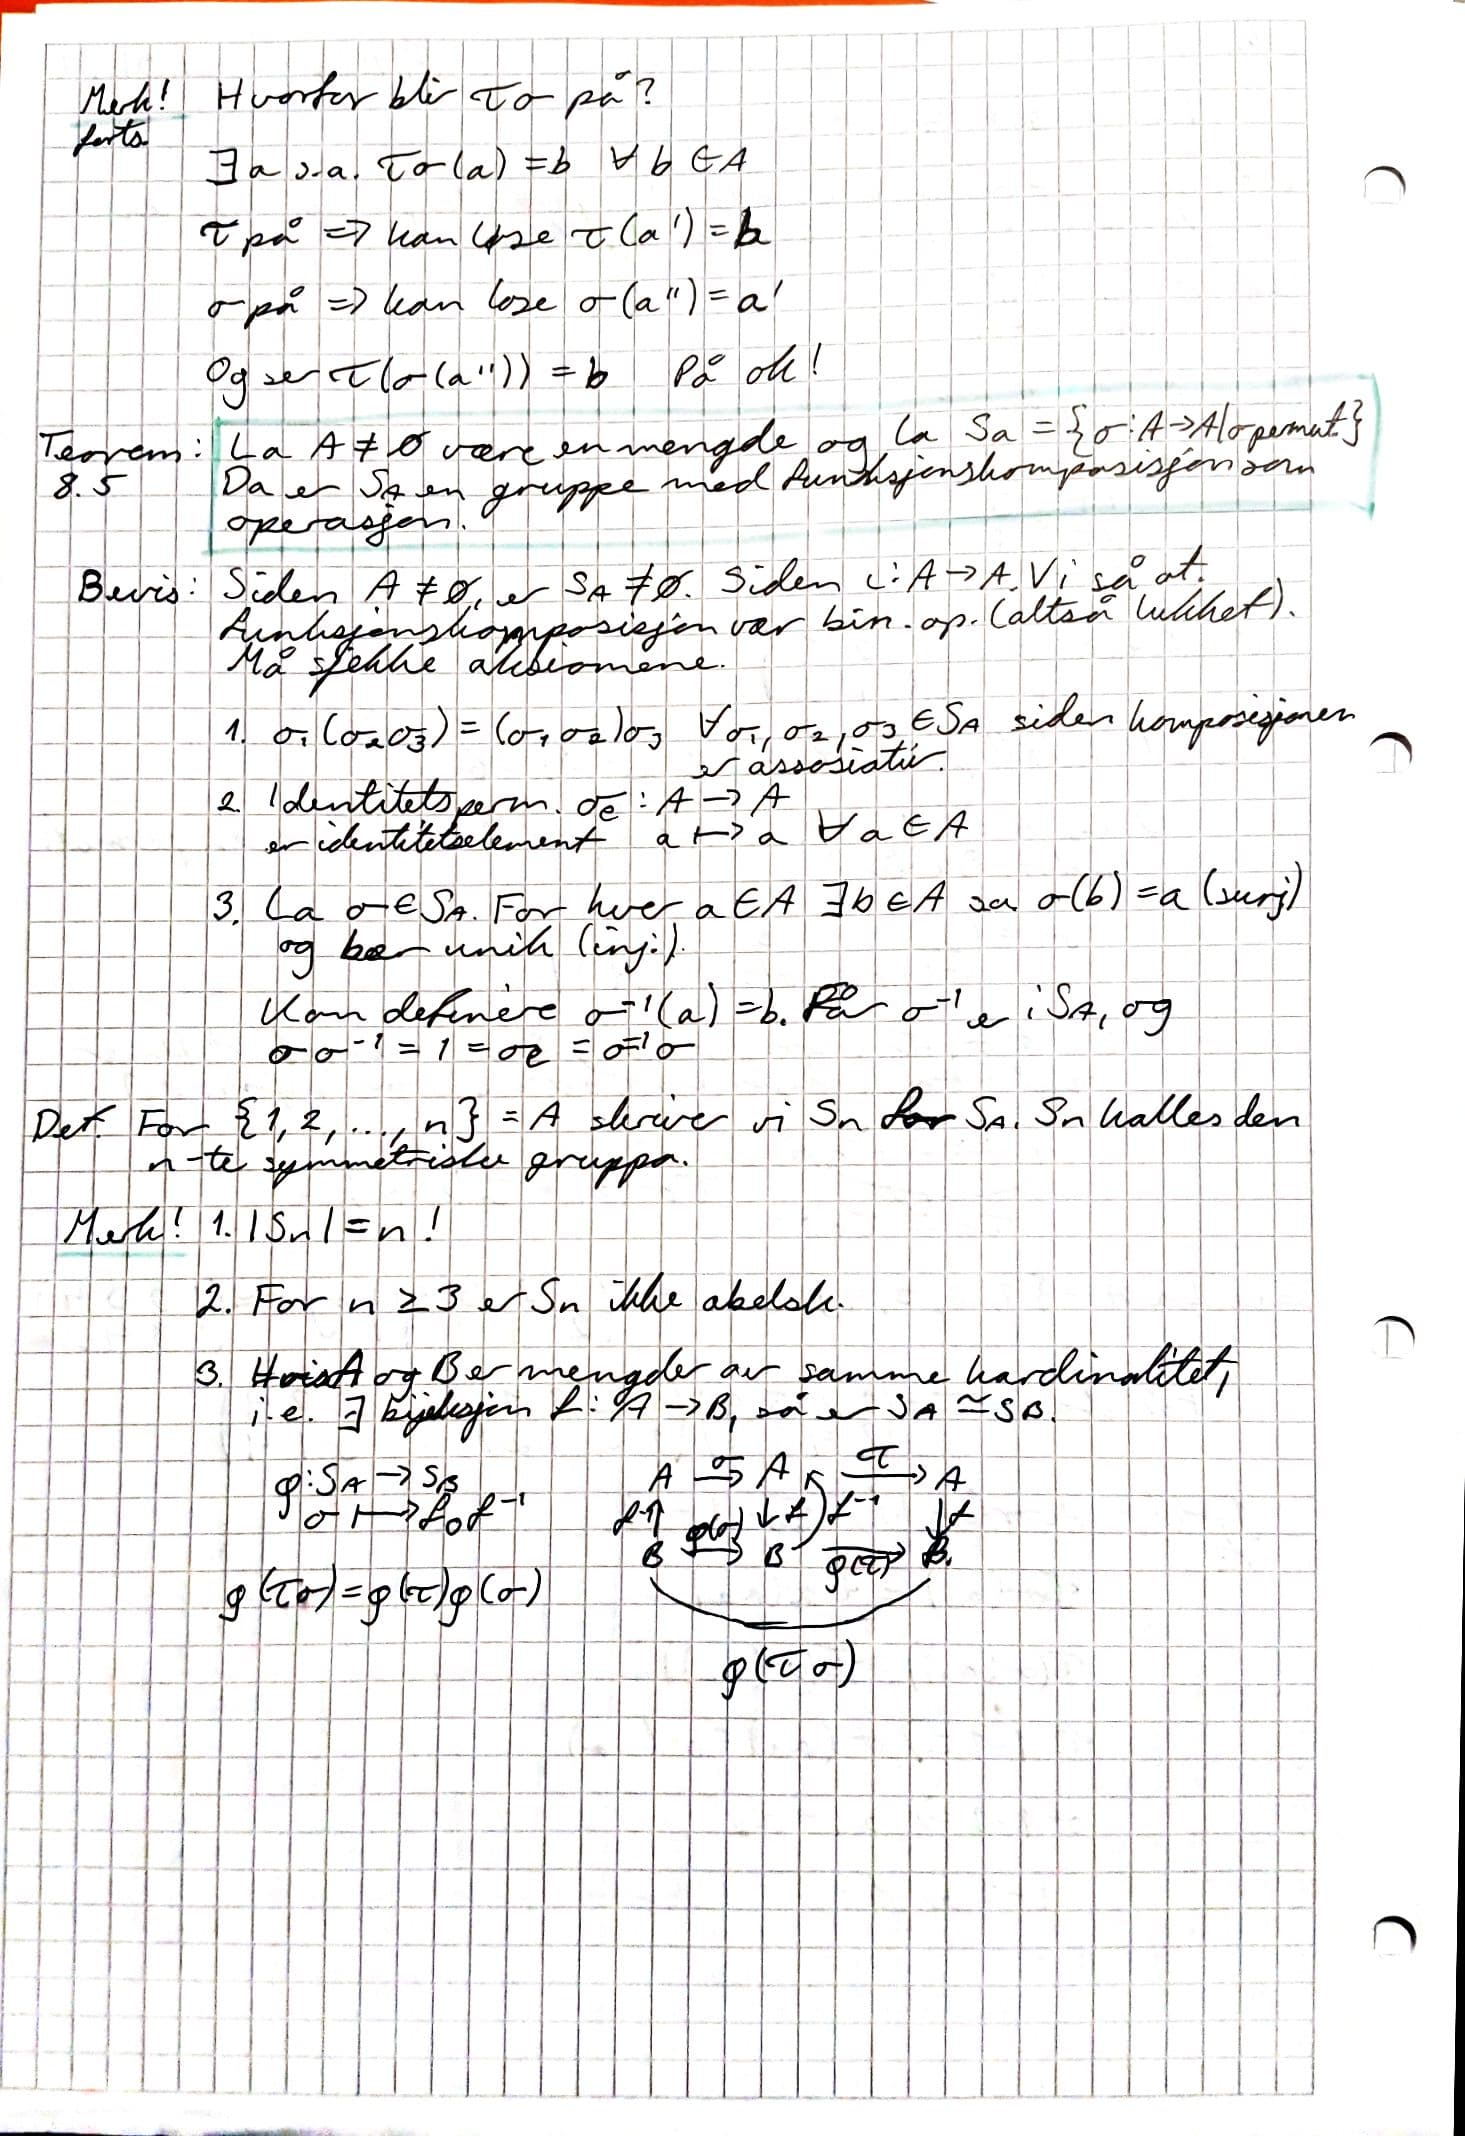 Merk! Hvorfor blir τσ på?
forts
∃ a s.a. τσ(a) = b ∀ b ∈ A
τ på => kan løse τ(a') = b
σ på => kan løse σ(a'') = a'
Og ser τ(σ(a'')) = b På ok!
Teorem: La A ≠ ∅ være en mengde og la Sa = {σ: A → A | σ permut.}
8.5 Da er S_A en gruppe med funksjonskomposisjon som
operasjon.
Bevis: Siden A ≠ ∅, er S_A ≠ ∅. Siden i: A → A. Vi så at
funksjonskomposisjon var bin. op. (altså lukket).
Må sjekke aksiomene.
1. σ₁(σ₂σ₃) = (σ₁σ₂)σ₃ ∀ σ₁, σ₂, σ₃ ∈ S_A siden komposisjonen
er assosiativ.
2. Identitetsperm. σ_e : A → A
er identitetselement a ↦ a ∀ a ∈ A
3. La σ ∈ S_A. For hver a ∈ A ∃ b ∈ A sa σ(b) = a (surj)
og b er unik (inj.).
Kan definere σ⁻¹(a) = b. Får σ⁻¹ er i S_A, og
σσ⁻¹ = 1 = σe = σ⁻¹σ
Def. For {1, 2, ..., n} = A skriver vi Sn for S_A. Sn kalles den
n-te symmetriske gruppa.
Merk! 1. |Sn| = n!
2. For n ≥ 3 er Sn ikke abelsk.
3. Hvis A og B er mengder av samme kardinalitet,
i.e. ∃ bijeksjon f: A → B, så er S_A ≅ S_B.
φ: S_A → S_B A σ → A τ → A
σ ↦ fσf⁻¹ f⁻¹↑ φ(σ) ↓f f⁻¹ ↓f
B → B φ(τ) → B.
φ(τσ) = φ(τ)φ(σ)
φ(τσ)